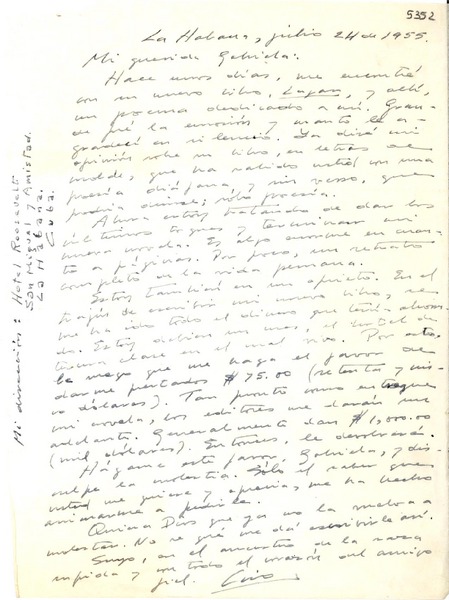 5352
La Habana, julio 24 de 1955.
Mi querida Gabriela:
Hace unos días, me encontré
con su nuevo libro, Lagar, y allí,
un poema dedicado a mí. Gran-
de fué la emoción y cuanto le a-
gradecí en silencio. Ya diré mi
opinión sobre su libro, en letras de
molde, que ha salido usted con una
poesía diáfana y sin peso, que
podría decirse: sólo poesía.
Ahora estoy tratando de dar los
últimos toques y terminar mi
nueva novela. Es algo enorme en cuan-
to a páginas. Por poco, un retrato
completo de la vida peruana.
Estoy también en un aprieto. En el
trajín de escribir mi nuevo libro, se
me ha ido todo el dinero que tenía ahorra-
do. Estoy debiendo un mes, el hotel de
tercera clase en el cual vivo. Por esto,
le ruego que me haga el favor de
darme prestados $75.00 (setenta y cin-
co dólares). Tan pronto como entregue
mi novela, los editores me darán un
adelanto. Generalmente dan $1,000.00
(mil dólares). Entonces, le devolveré.
Hágame este favor, Gabriela, y dis-
culpe la molestia. Sólo el saber que
usted me quiere y aprecia, me ha hecho
animarme a pedirle.
Quiera Dios que ya no la vuelva a
molestar. No sé qué me da escribirle así.
Suyo, en el encuentro de la raza
y con todo el corazón del amigo
fiel. Ciro
Mi dirección: Hotel Roosevelt
San Miguel y Amistad.
La Habana.
Cuba.